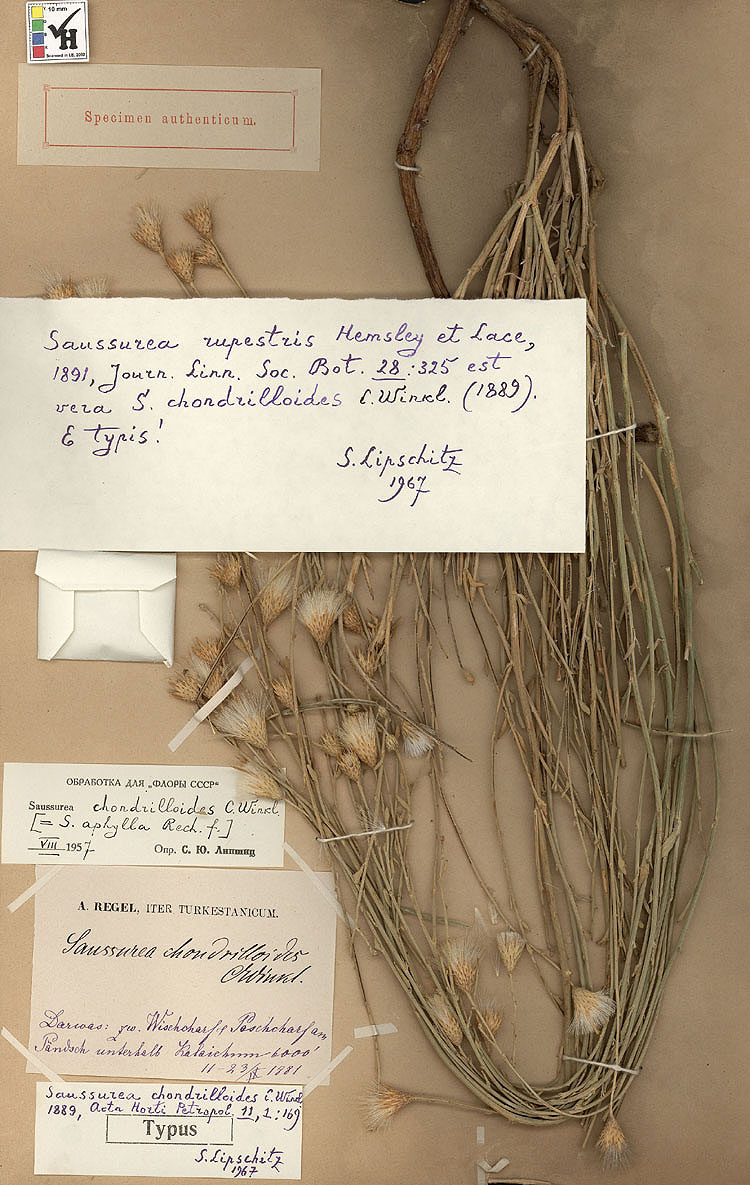 10 mm
H
Scanned in LE, 2002
Specimen authenticum.
Saussurea rupestris Hemsley et Lace,
1891, Journ. Linn. Soc. Bot. 28:325 est
vera S. chondrilloides C. Winkl. (1889).
E typis!
S. Lipschitz
1967
ОБРАБОТКА ДЛЯ „ФЛОРЫ СССР“
Saussurea chondrilloides C. Winkl
[= S. aphylla Rech. f.]
VIII 1957 Опр. С. Ю. Липшиц
A. REGEL, ITER TURKESTANICUM.
Saussurea chondrilloides
CWinkl.
Darwas: zw. Wischcharf & Paschcharf am
Pändsch unterhalb Kalaichum 6000'
11-23/ 1881
Saussurea chondrilloides C. Winkl
1889, Acta Horti Petropol. 11, 1:169
Typus
S. Lipschitz
1967